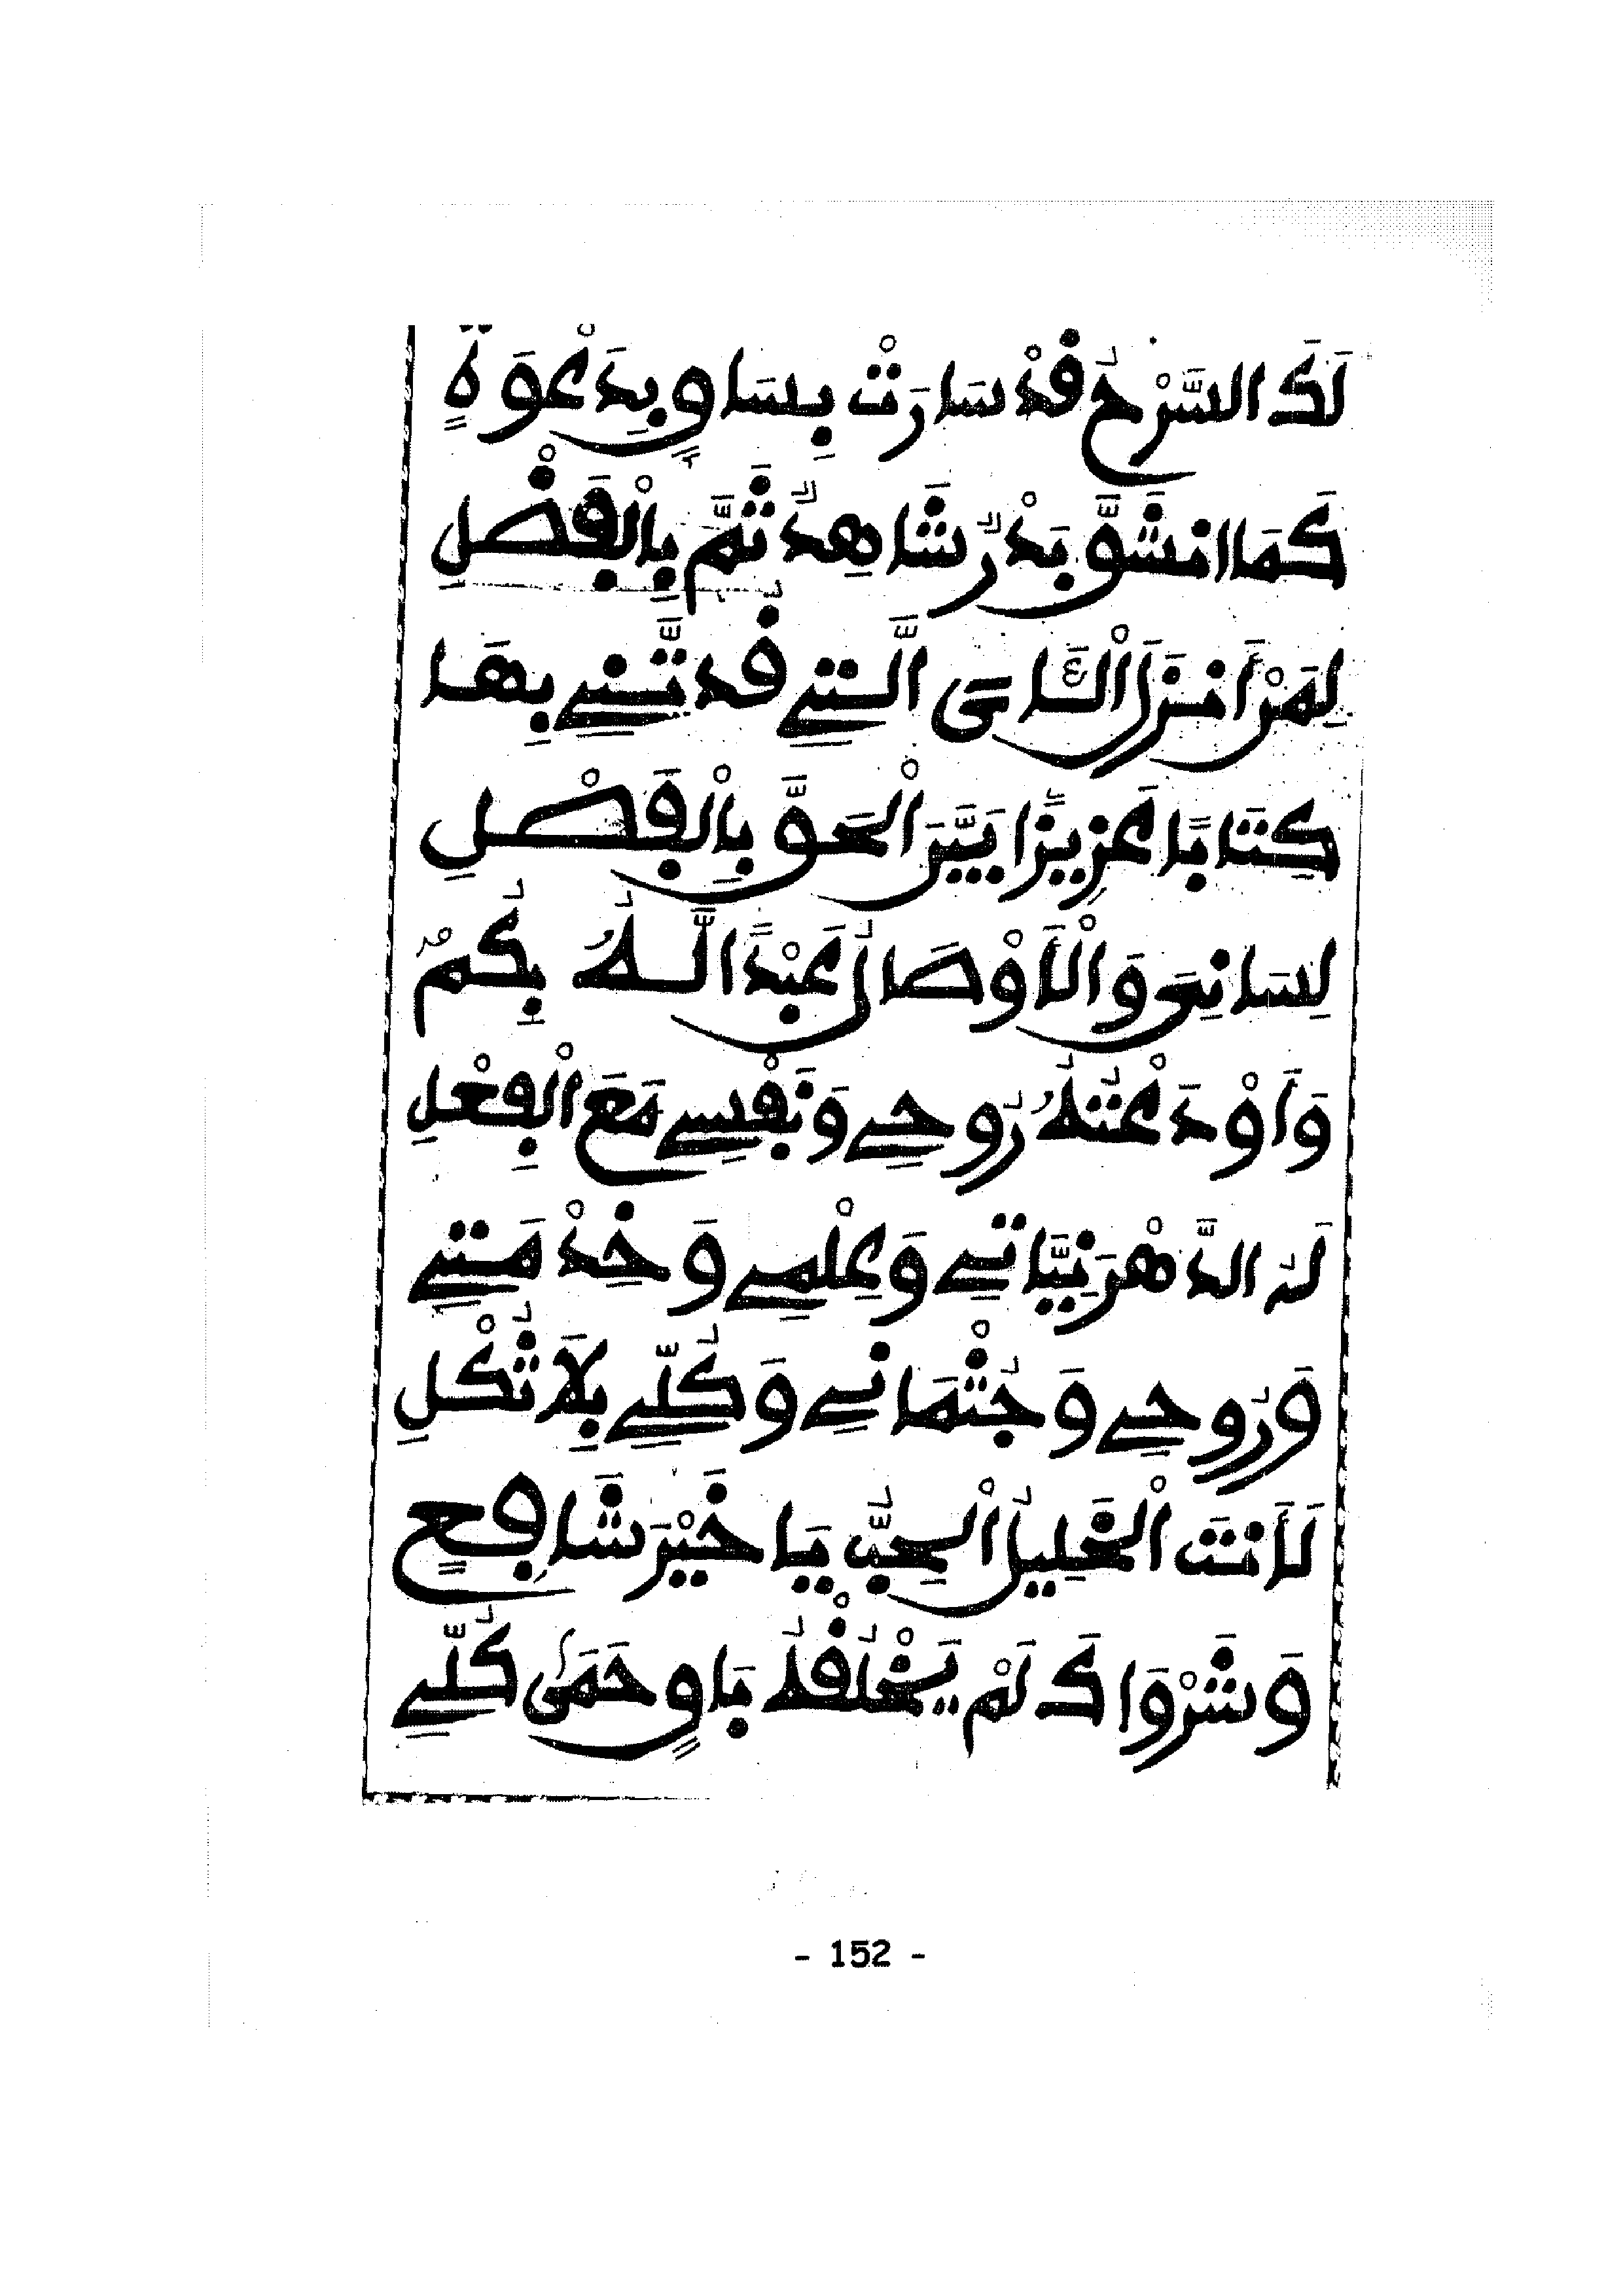 لَكَ السَّرْحُ قَدْ سَارَتْ بِسَاقٍ بِدَعْوَةٍ
كَمَا انْشَقَّ بَدْرٌ شَاهِدٌ ثُمَّ بِالْفَضْلِ
لِمَنْ أَنْزَلَ الْأَيَ الَّتِي قَدْ تَّنِي بِهَا
كِتَابًا عَزِيزًا بَيَّنَ الْحَقَّ بِالْفَصْلِ
لِسَانِي وَالْأَوْصَالُ عَبْدًا لَّهُ بِكُمْ
وَأَوْدَعْتُهُ رُوحِي وَنَفْسِي مَعَ الْفِعْلِ
لَهُ الدَّهْرَ نِيَّاتِي وَعِلْمِي وَخِدْمَتِي
وَرُوحِي وَجُثْمَانِي وَكُلِّي بِلَا ثُكْلِ
لَأَنْتَ الْخَلِيلُ الْحِبُّ يَا خَيْرَ شَافِعٍ
وَشَرْوَاكَ لَمْ يَخْلُقْهُ بَاقٍ حَمَى كُلِّي
- 152 -